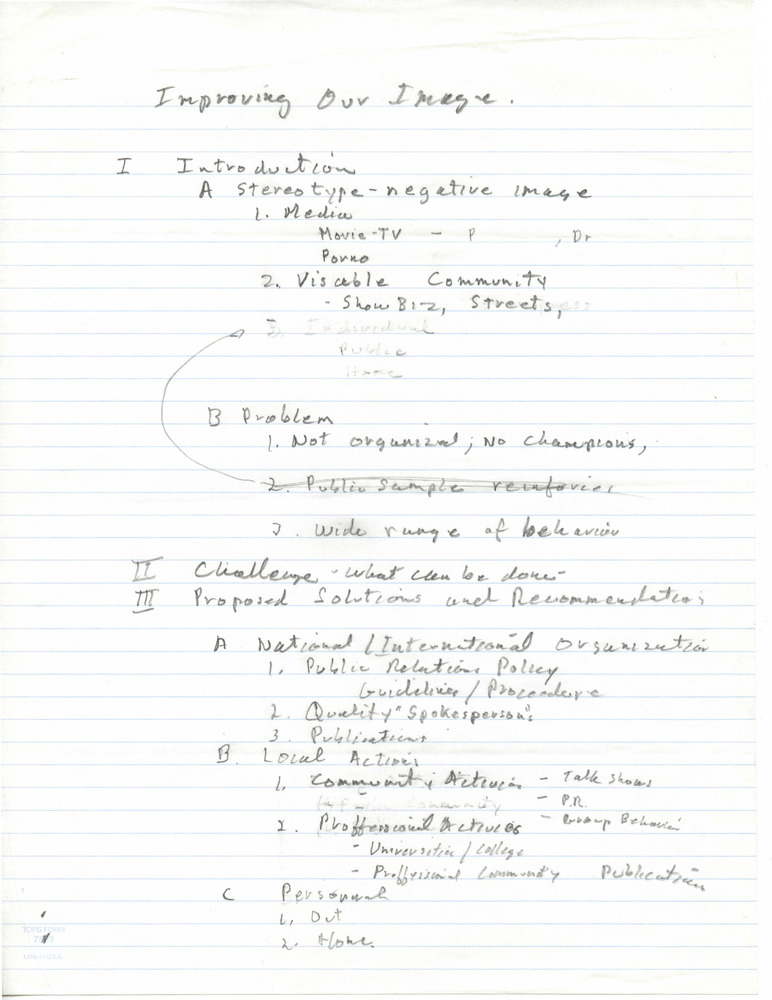 Improving Our Image.
I Introduction
A Stereotype - negative image
1. Media
Movie - TV - P , Dr
Porno
2. Visable Community
- Show Biz, Streets,
3. Individual
Public
Home
B Problem
1. Not organized; No Champions,
2. Public Sample reinforces
3. Wide range of behavior
II Challenge - what can be done -
III Proposed Solutions and Recommendations
A National / International Organization
1. Public Relations Policy
Guidelines / Proceedure
2. Quality "Spokesperson"s
3. Publications
B. Local Actions
1. Community Activies - Talk Shows
- P.R.
Community
2. Proffessional Activies - Group Behavior
- Universities / College
- Proffessional Community Publication
C Personal
1. Out
2. Home.
TOPS FORM
LITHO IN U.S.A.